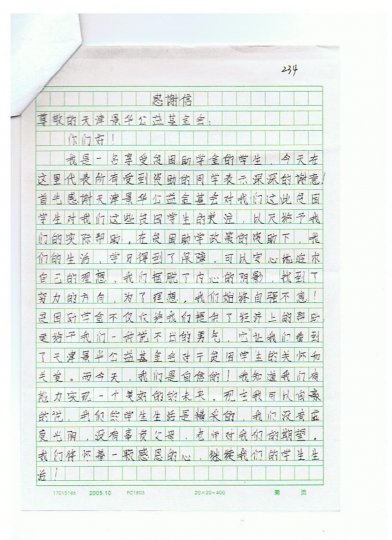 234
感谢信
尊敬的天津景华公益基金会:
你们好!
我是一名享受贫困助学金的学生,今天在
这里代表所有受到资助的同学表示深深的谢意!
首先感谢天津景华公益基金会对我们这些贫困
学生对我们这些贫困学生的关注,以及给予我
们的实际帮助。在贫困助学政策的资助下,我
们的生活,学习得到了保障,可以安心地追求
自己的理想。我们摆脱了内心的阴影,找到了
努力的方向,为了理想,我们始终自强不息!
贫困助学金不仅仅给我们提供了经济上的帮助,
是给予我们一种说不出的勇气,它让我们看到
了天津景华公益基金会对于贫困学生的关怀和
关爱。而今天,我们是自信的!我知道我们有
能力实现一个美好的的未来,现在我可以自豪
的说,我们的学生生活是精采的,我们没有虚
度光阴,没有辜负父母、老师对我们的期望。
我们伴怀着一颗感恩的心,继续我们的学生生
活!
17015168 2005.10 PC1803 20×20=400 第 页